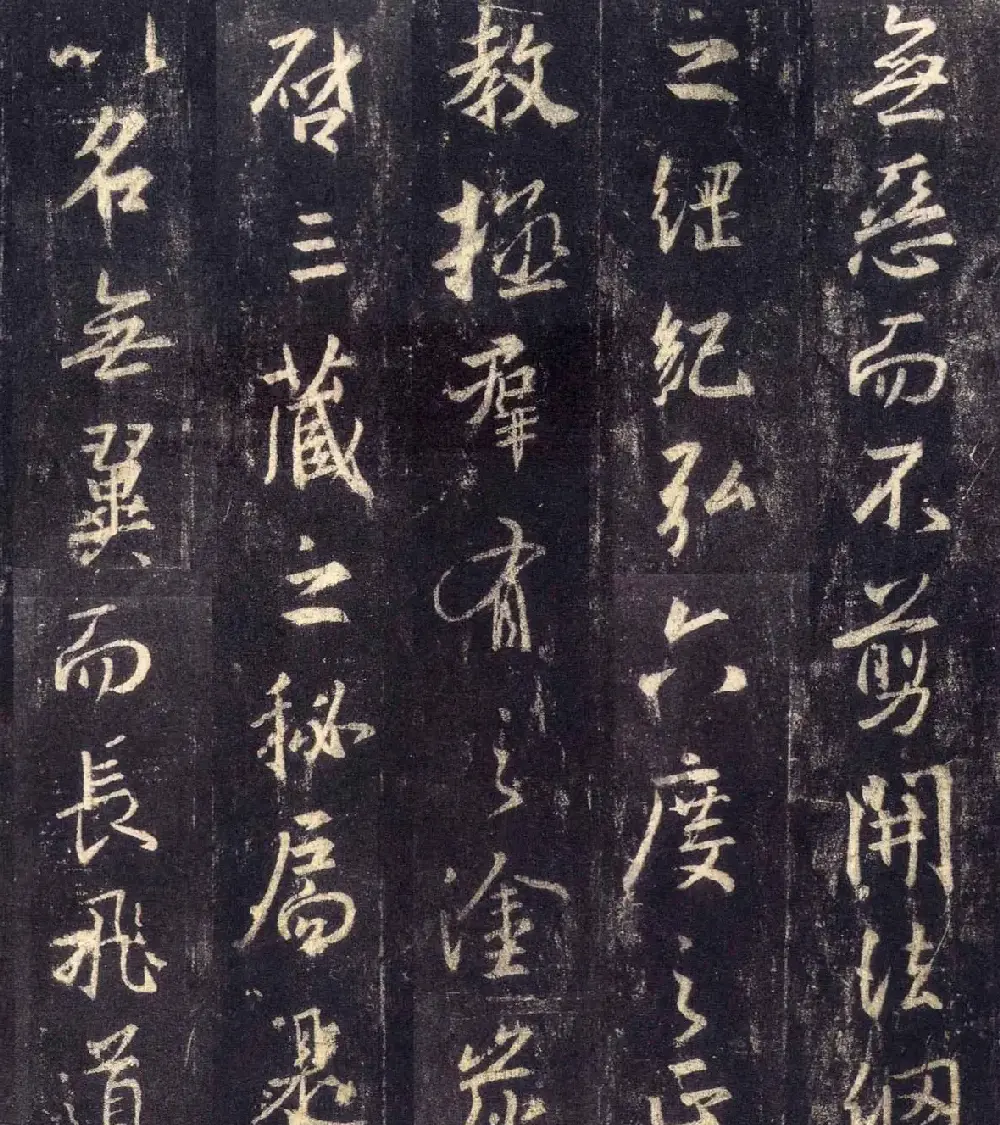 無惡而不剪開法網
之綱紀弘六度正
教拯羣有之塗炭
啓三藏之秘扃是
以名無翼而長飛道